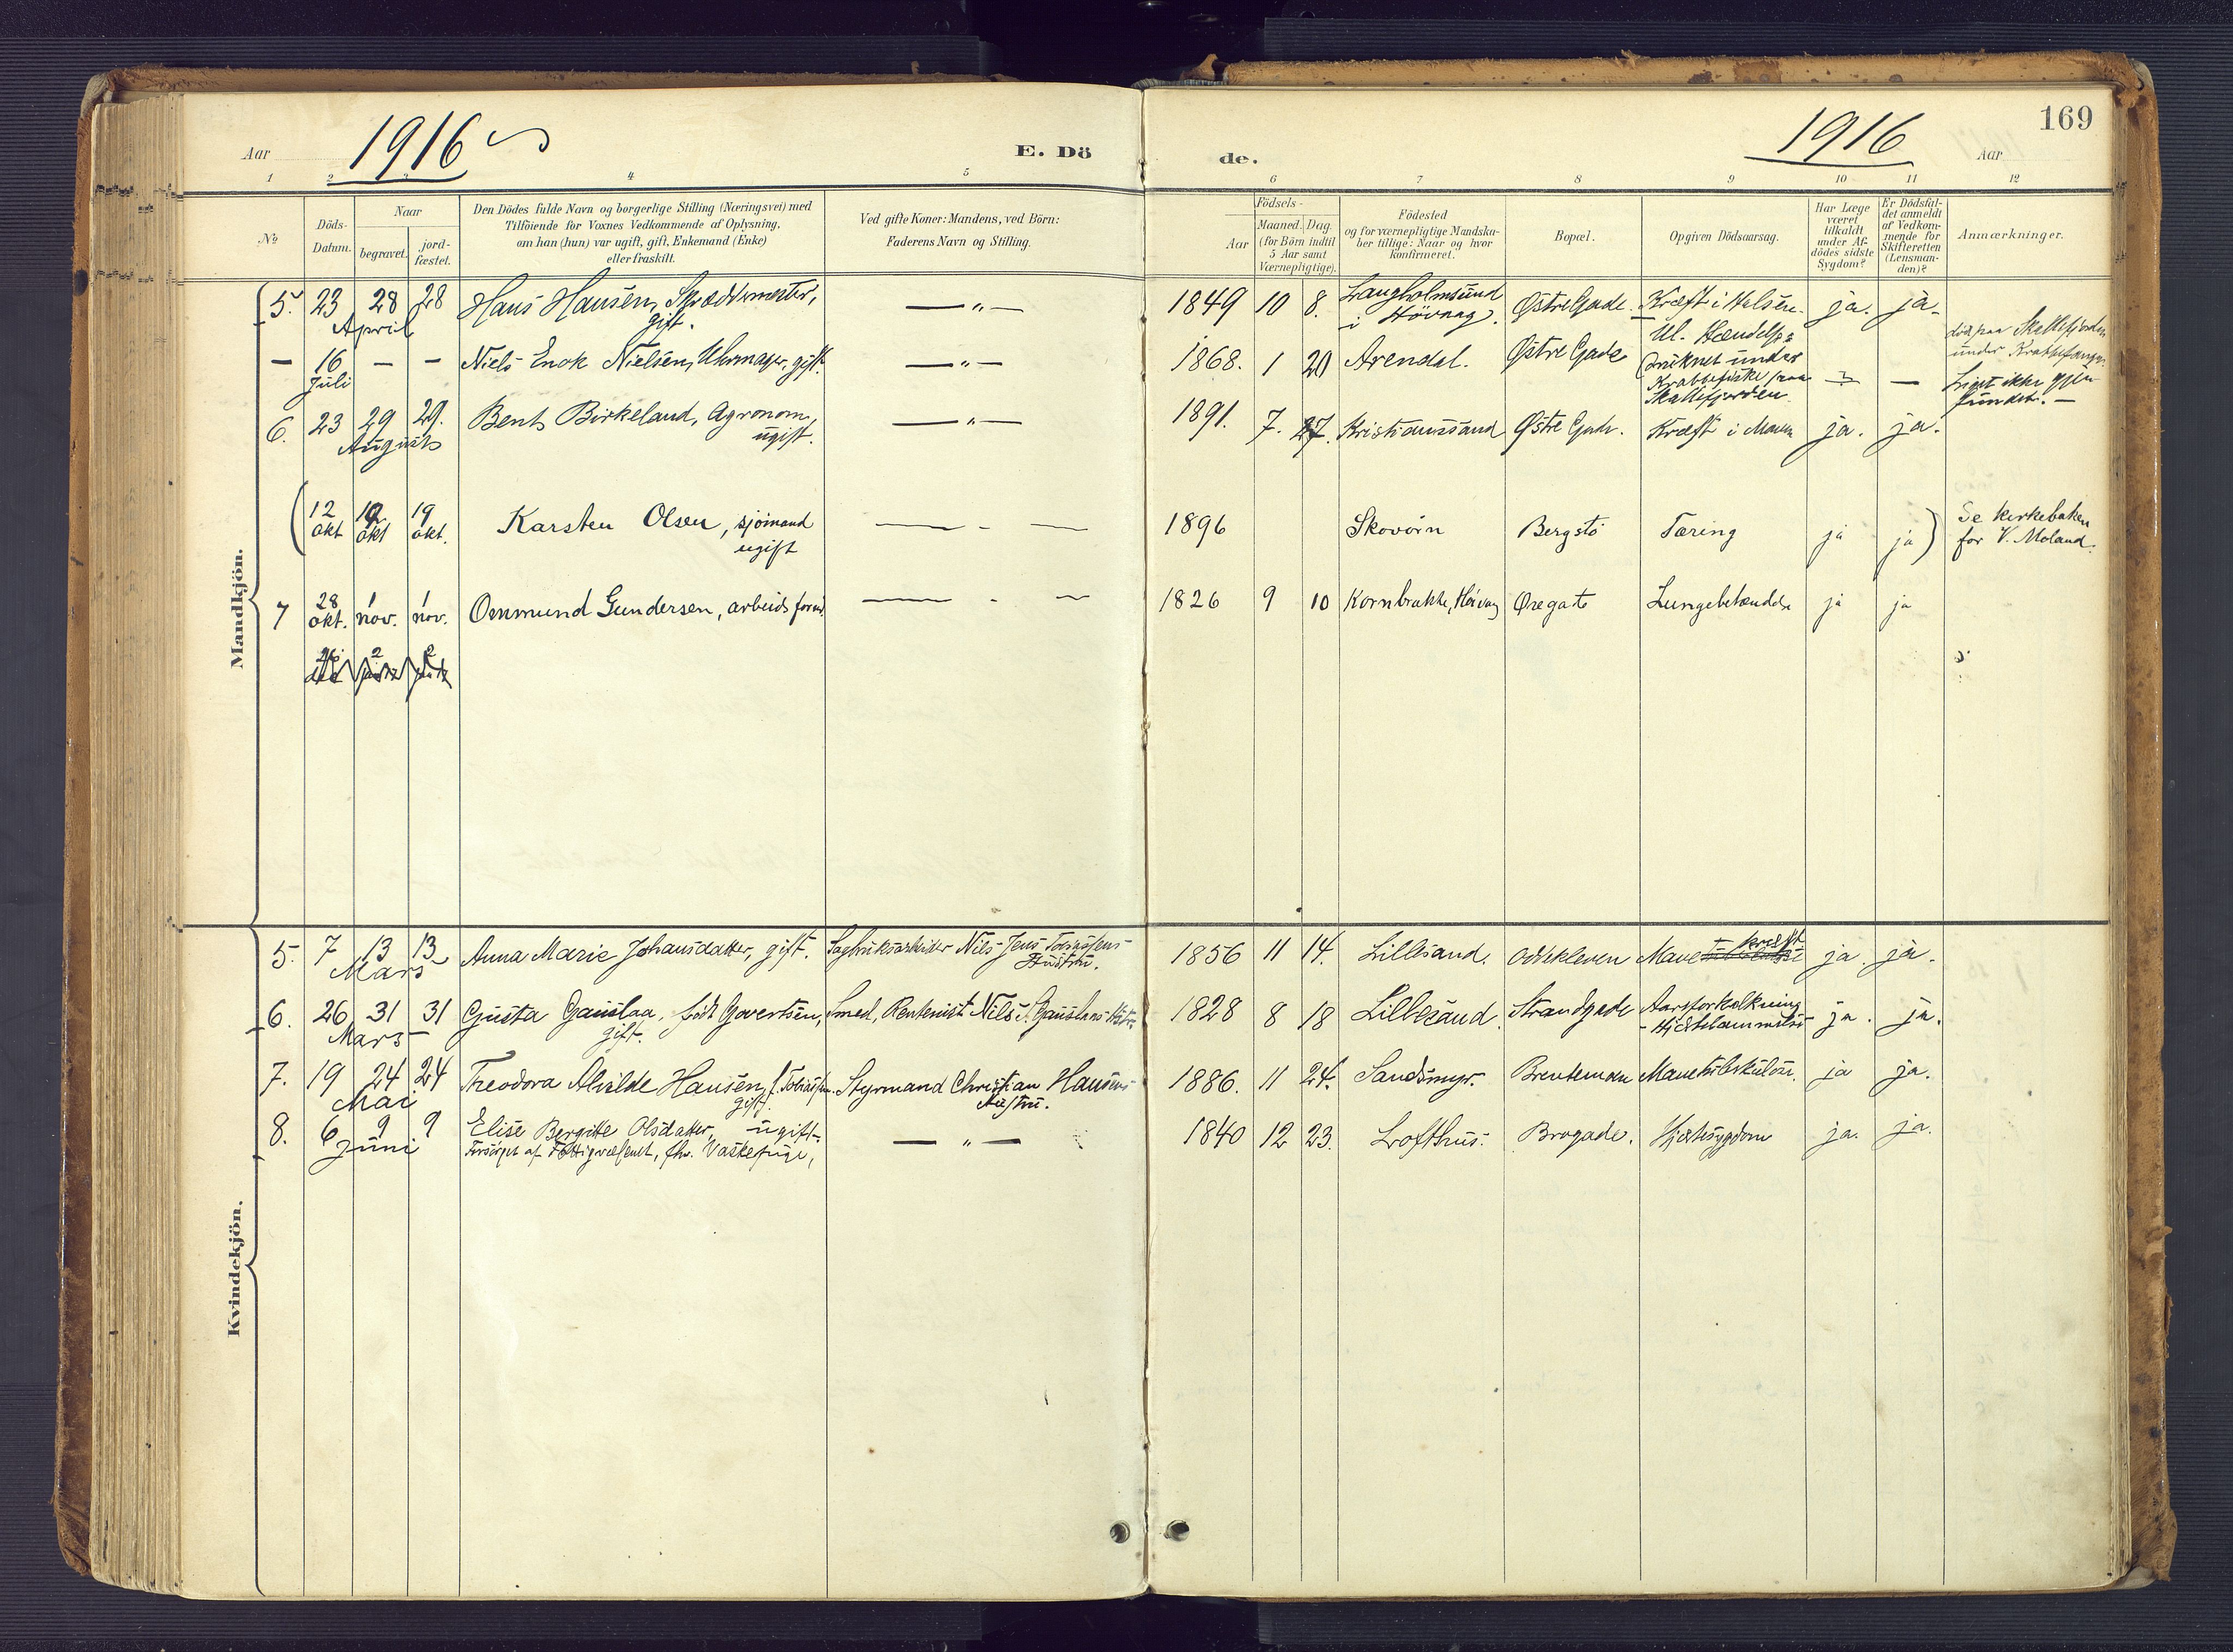 Aar 1916
E. Dö
de.
1916
Aar
169
1 2 3 4 5 6 7 8 9 10 11 12
No
Döds-
Datum.
Naar
begravet.
jord-
fæstet.
Den Dödes fulde Navn og borgerlige Stilling (Næringsvei) med
Tilföiende for Voxnes Vedkommende af Oplysning,
om han (hun) var ugift, gift, Enkemand (Enke)
eller fraskilt.
Ved gifte Koner: Mandens, ved Börn:
Faderens Navn og Stilling.
Födsels-
Aar
Maaned. Dag.
(for Börn indtil
5 Aar samt
Værnepligtige).
Födested
og for værnepligtige Mandska-
ber tillige: Naar og hvor
konfirmeret.
Bopæl.
Opgiven Dödsaarsag.
Har Læge
været
tilkaldt
under Af-
dödes sidste
Sygdom?
Er Dödsfal-
det anmeldt
af Vedkom-
mende for
Skifteretten
(Lensman-
den)?
Anmærkninger.
Mandkjön.
5. 23 28 28 Hans Hansen, Skræddermester, — " — 1849 10 8. Langholmsund Østre Gade. Kræft i Halsen. ja. ja.
April gift. i Hövaag.
— 16 — — Niels Enok Nielsen, Uhrmager, gift. — " — 1868. 1 20 Arendal. Østre Gade Ul. Hændelse:
Juli (druknet under
Krabbefiske paa — —
Skallefjorden
död paa Skallefjorden
under Krabbefangst.
Liget ikke gjen-
fundet. —
6. 23 29 29. Bent Birkeland, Agronom, — " — 1891. 7. 27. Kristianssand Østre Gade. Kræft i Maven ja. ja.
August ugift.
(12 19 19 Karsten Olsen, sjömand — - — 1896 Skovörn Bergstö Tæring ja ja)
okt okt okt. ugift
Se kirkeboken
for V. Moland.
7 28 1 1 Ommund Gundersen, arbeids — - — 1826 9 10 Kornbrække, Høivåg Øregate Lungebetændelse ja ja
okt. nov. nov.
26 2 2
Kvindekjön.
5. 7 13 13 Anna Marie Johansdatter, gift. Sagbruksarbeider Nils Jens Tobiassens 1856 11 14. Lillesand. Odekleven Mavekræft ja. ja.
Mars Hustru.
6. 26 31 31 Gusta Gauslaa, födt Govertsen, Smed, Rentenist Nils J. Gauslaas Hustru 1828 8 18 Lillesand. Strandgade Aareforkalkning ja. ja.
Mars gift. - Hjertelammelse
7. 19 24 24 Theodora Alvilde Hansen, f. Tobiassen. Styrmand Christian Hansens 1886. 11 24. Sandsmyr. Brentemoen Mavetuberkulose. ja ja.
Mai gift. Hustru.
8. 6 9 9 Elise Bergitte Olsdatter, ugift. — " — 1840 12 23. Lofthus. Brogade. Hjertesygdom ja. ja.
Juni Forsörget af Fattigvæsenet, fhv. Vaskepige,